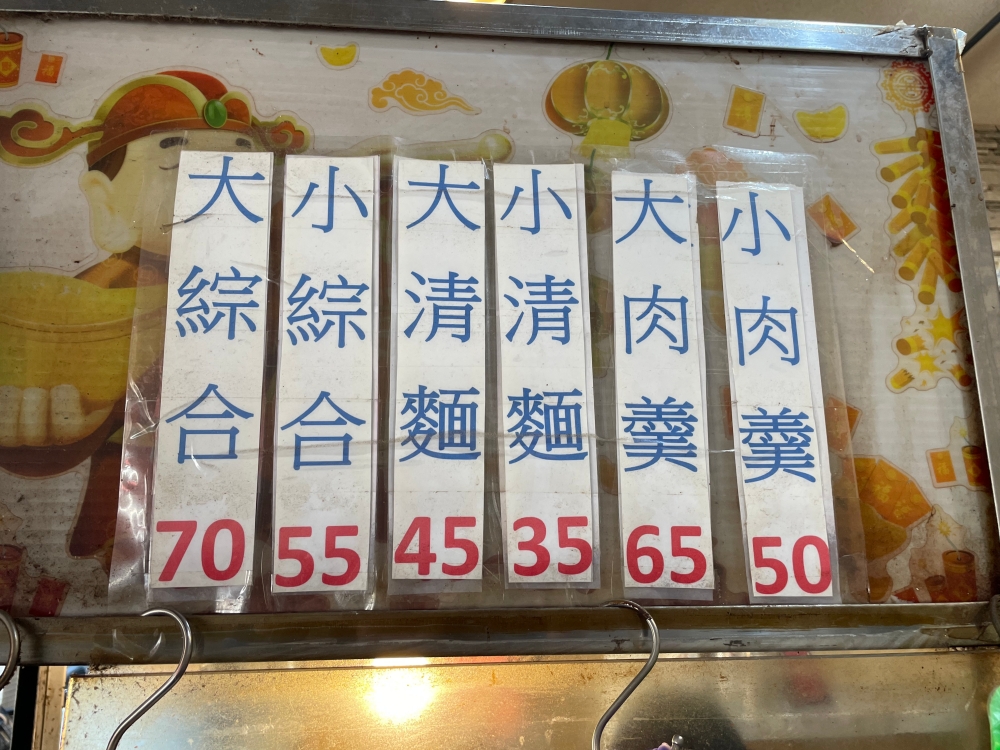 大綜合 70
小綜合 55
大清麵 45
小清麵 35
大肉羹 65
小肉羹 50